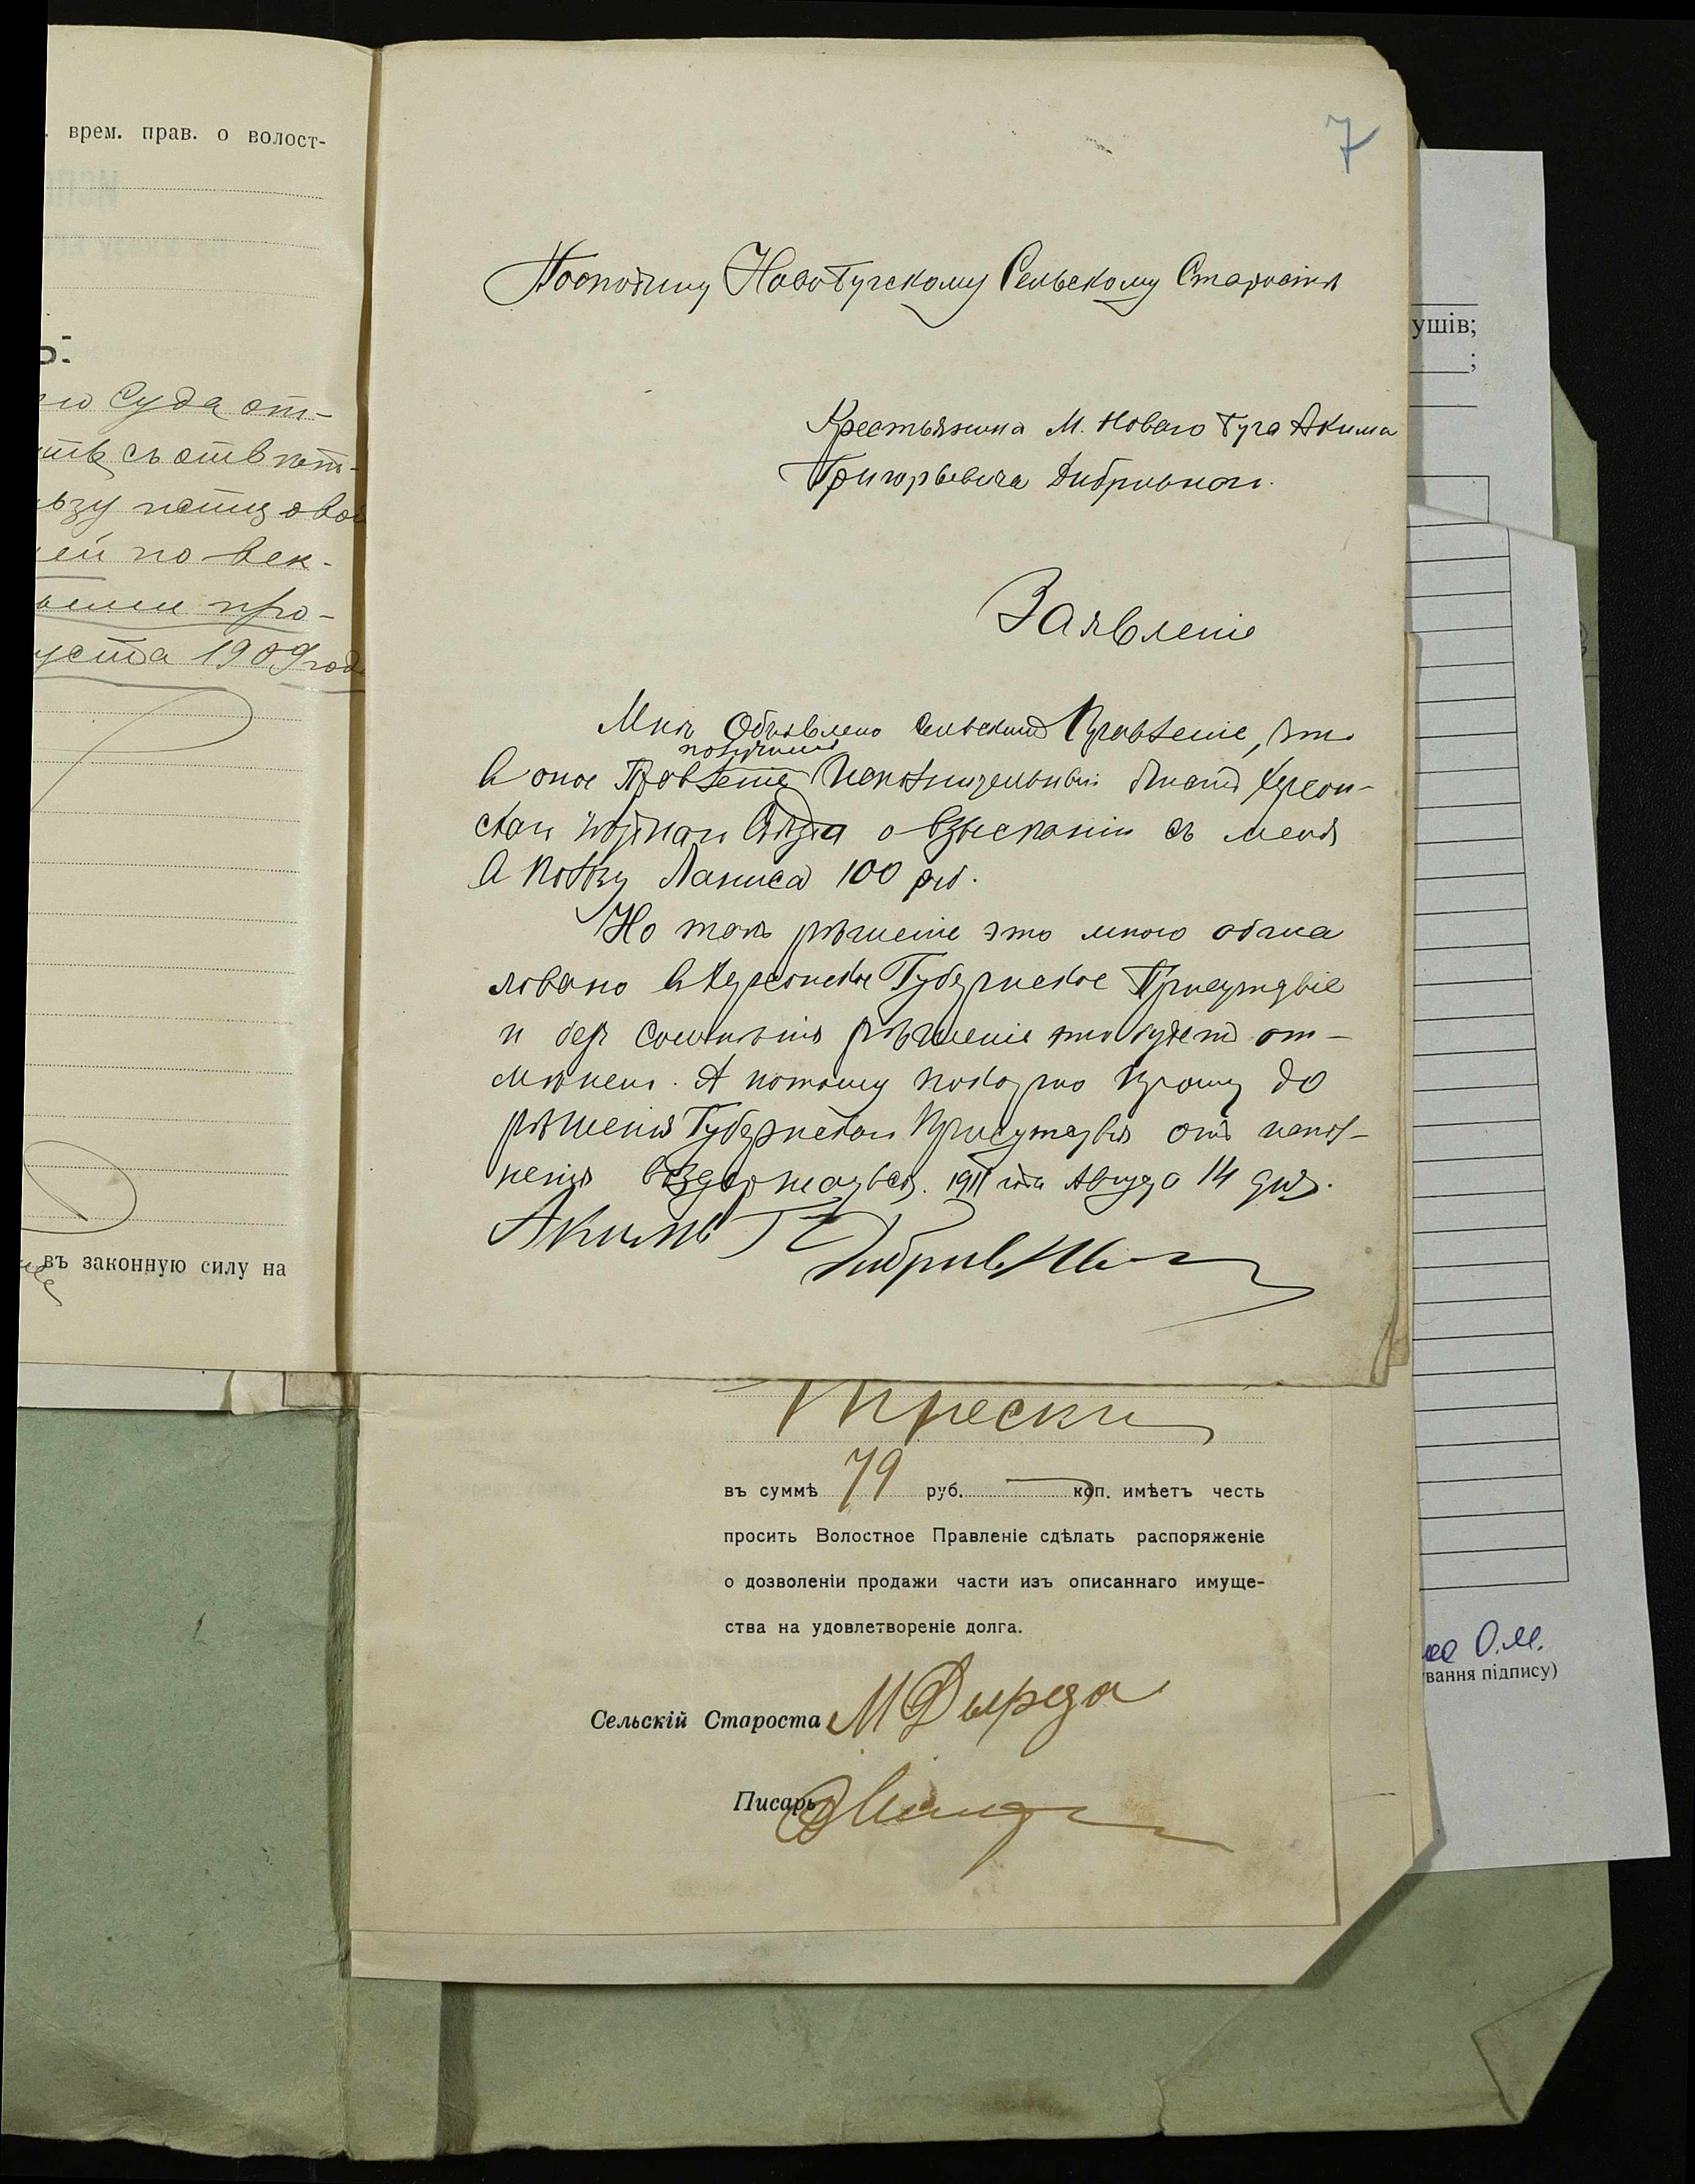 врем. прав. о волост-
Суда от-
съ отвѣт-
ей по век-
про-
уста 1909 год
въ законную силу на
7
Господину Новобугскому Сельскому Старостѣ
Крестьянина М. Новаго Буга Акима
Григорьевича Дибривнаго.
Заявленіе
Мнѣ Объявлено Сельскимъ Правленіе, что
получено
в оное Правленіе Исполнительный Херсон-
ской о взысканіи съ меня
в пользу 100 руб.
Но такъ рѣшеніе это мною обжа
ловано в Херсонское Губернское Присутствіе
и без сомнѣнія рѣшеніе это будетъ от-
мѣнено. А потому покорно прошу до
рѣшенія Губернскаго Присутствія отъ испол-
ненія воздержаться. 1911 года Августа 14 дня.
Акимъ Г. Дибривный
въ суммѣ 79 руб. — коп. имѣетъ честь
просить Волостное Правленіе сдѣлать распоряженіе
о дозволеніи продажи части изъ описаннаго имуще-
ства на удовлетвореніе долга.
Сельскій Староста М Дырда
Писарь
ушів;
;
О.М.
вання підпису)